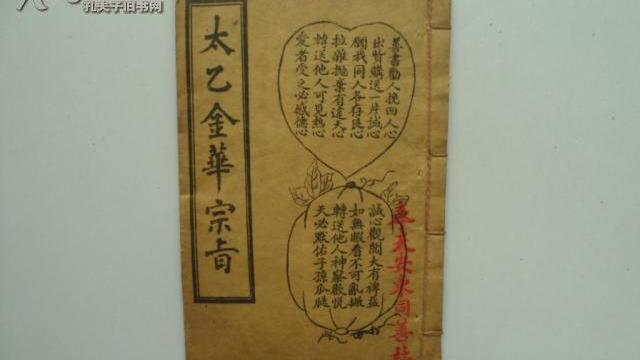 孔夫子旧书网
太乙金華宗旨
善書勸人挽回人心
出資購送一片誠心
願我同人各存良心
拉雜拋棄有違天心
轉送他人可見熱心
愛者受之必感德心
誠心觀閱大有裨益
如無暇看不可亂擲
轉送他人神察歡悅
天必默佑子孫瓜瓞
天安
同善社